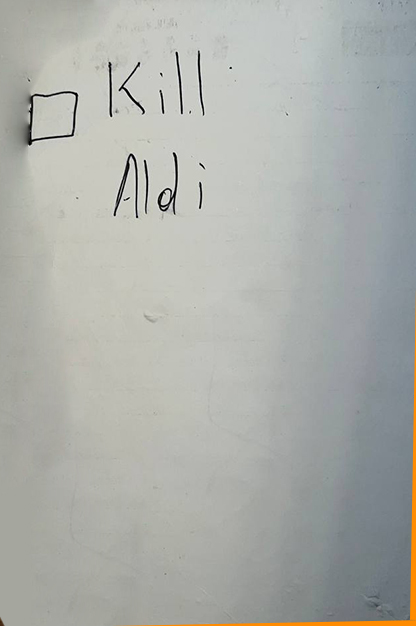 Kill
Aldi